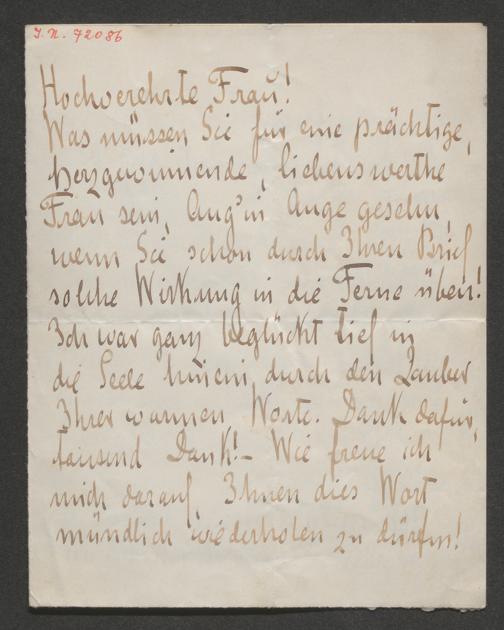 J.N. 72086
Hochverehrte Frau!
Was müssen Sie für eine prächtige,
herzgewinnende, liebenswerthe
Frau sein, Aug' in Auge gesehn,
wenn Sie schon durch Ihren Brief
solche Wirkung in die Ferne üben!
Ich war ganz beglückt tief in
die Seele hinein, durch den Zauber
Ihrer warmen Worte. Dank dafür,
tausend Dank! – Wie freue ich
mich darauf, Ihnen dies Wort
mündlich wiederholen zu dürfen!